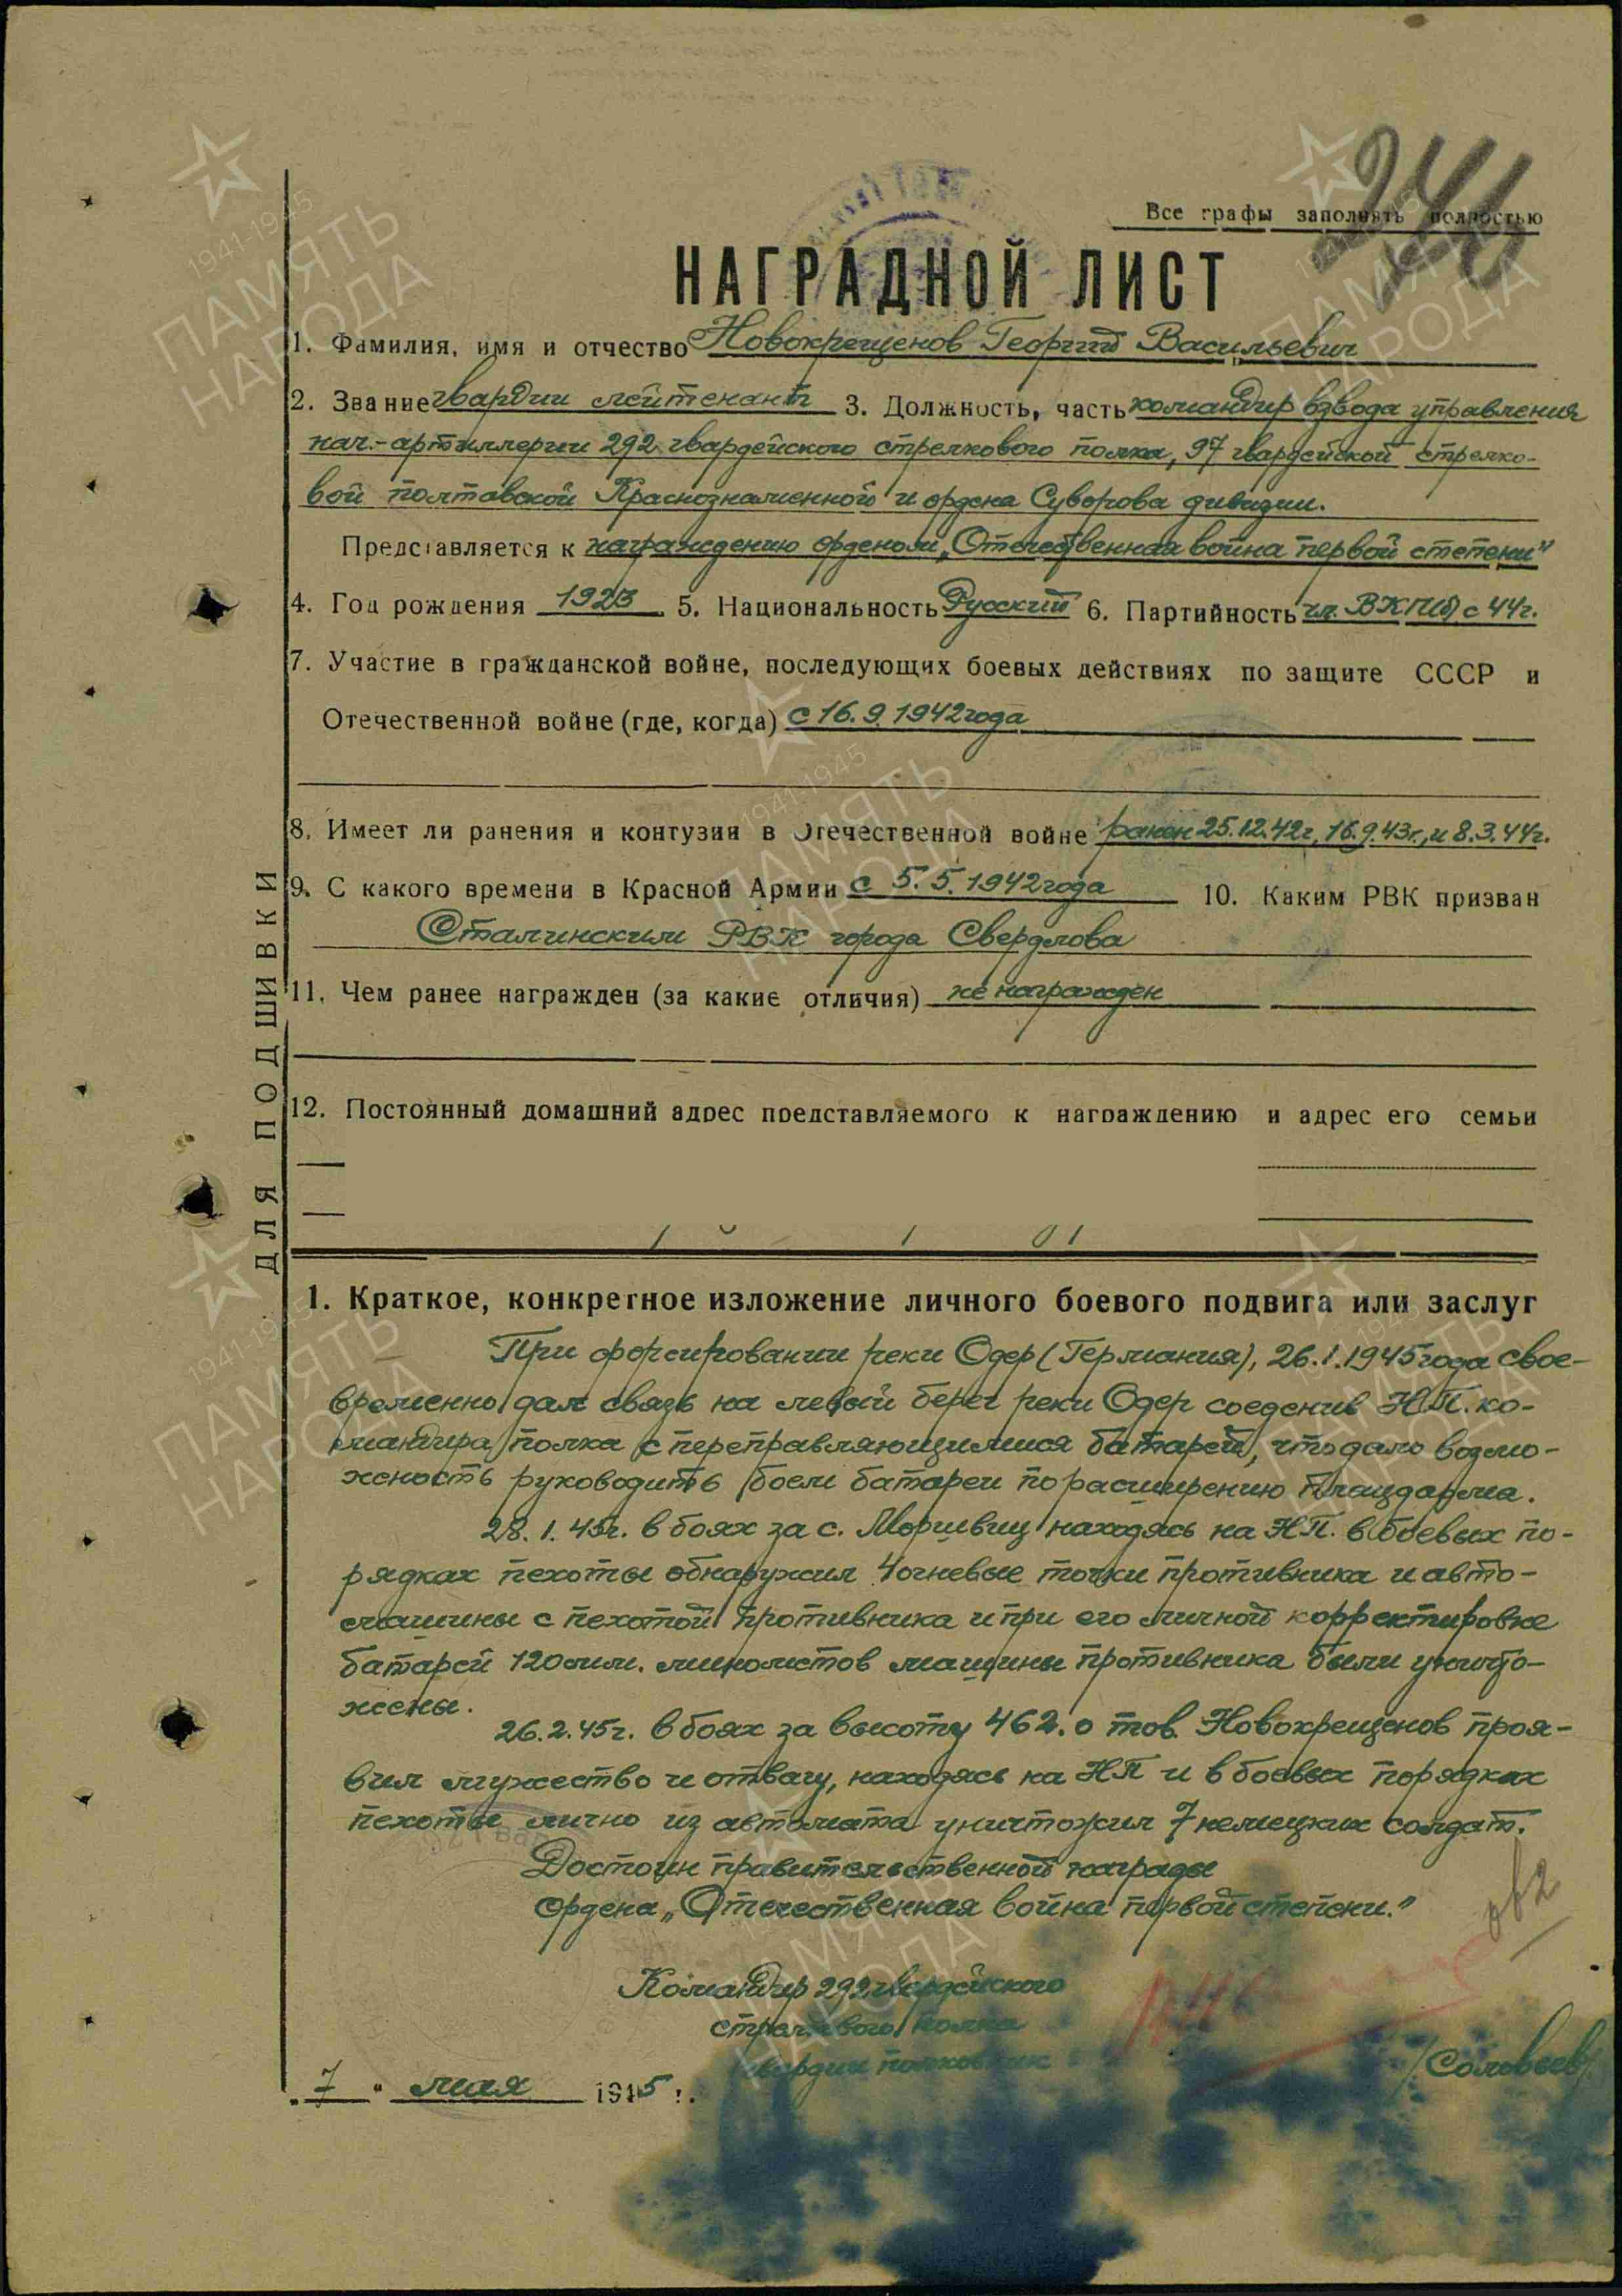 246
Все графы заполнять полностью
НАГРАДНОЙ ЛИСТ
1. Фамилия, имя и отчество Новокрещенов Георгий Васильевич
2. Звание гвардии лейтенант 3. Должность, часть командир взвода управления
нач.-артиллерии 292 гвардейского стрелкового полка, 97 гвардейской стрелко-
вой полтавской Краснознаменной и ордена Суворова дивизии.
Представляется к награждению орденом „Отечественная война первой степени"
4. Год рождения 1923 5. Национальность Русский 6. Партийность чл. ВКП(б) с 44г.
7. Участие в гражданской войне, последующих боевых действиях по защите СССР и
Отечественной войне (где, когда) с 16.9.1942 года
8. Имеет ли ранения и контузии в Отечественной войне ранен 25.12.42г, 16.9.43г., и 8.3.44г.
9. С какого времени в Красной Армии с 5.5.1942 года 10. Каким РВК призван
Сталинским РВК города Свердлова
11. Чем ранее награжден (за какие отличия) не награжден
12. Постоянный домашний адрес представляемого к награждению и адрес его семьи
ДЛЯ ПОДШИВКИ
1. Краткое, конкретное изложение личного боевого подвига или заслуг
При форсировании реки Одер (Германия), 26.1.1945 года свое-
временно дал связь на левый берег реки Одер соеденив Н.П. ко-
мандира полка с переправляющимися батарей, что дало возмо-
жность руководить боем батареи по расширению плацдарма.
28.1.45г. в боях за с. Моршвиц находясь на Н.П. в боевых по-
рядках пехоты обнаружил 4 огневые точки противника и авто-
машины с пехотой противника и при его личной корректировке
батарей 120 мм. минометов машины противника были уничто-
жены.
26.2.45г. в боях за высоту 462.0 тов. Новокрещенов проя-
вил мужество и отвагу, находясь на НП и в боевых порядках
пехоты лично из автомата уничтожил 7 немецких солдат.
Достоин правительственной награды
ордена „Отечественная война первой степени."
Командир 292 гвардейского
стрелкового полка
гвардии полковник /Соловьев/
„7" мая 1945 г.
1941-1945
ПАМЯТЬ
НАРОДА